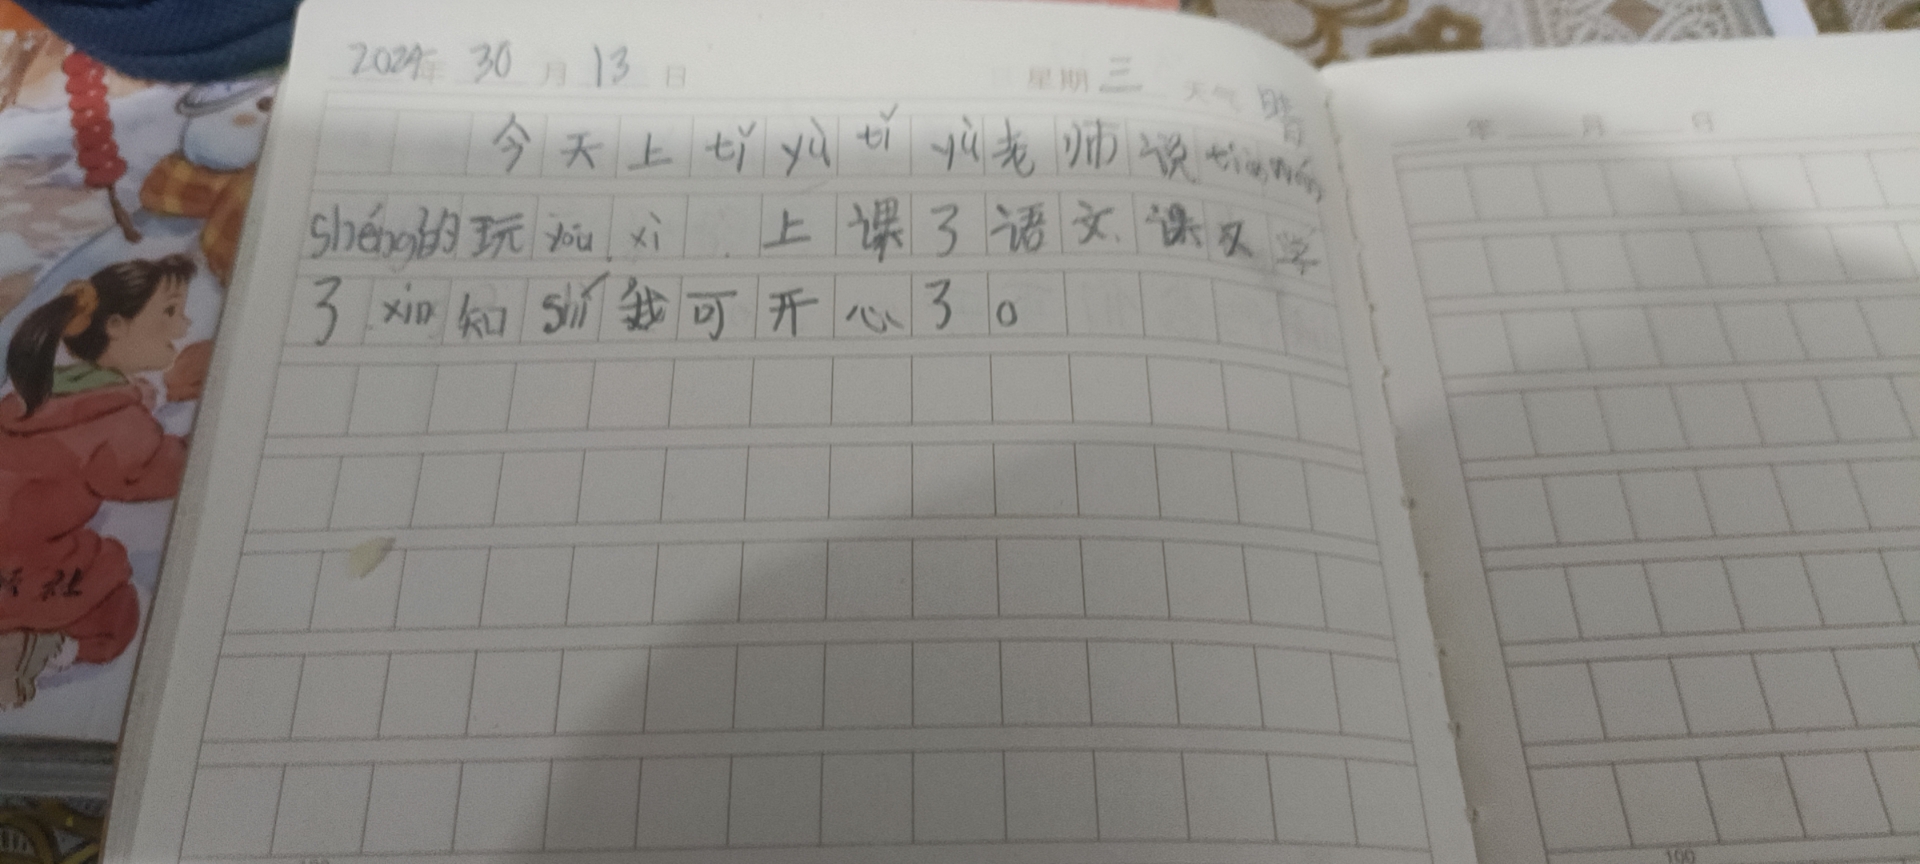 2024年 30 月 13 日 星期 三 天气 晴
今天上tǐ yù tǐ yù老师说
shéng的玩yóu xì.上课了语文.课又学
了xin知shí我可开心了。
年 月 日
社
100